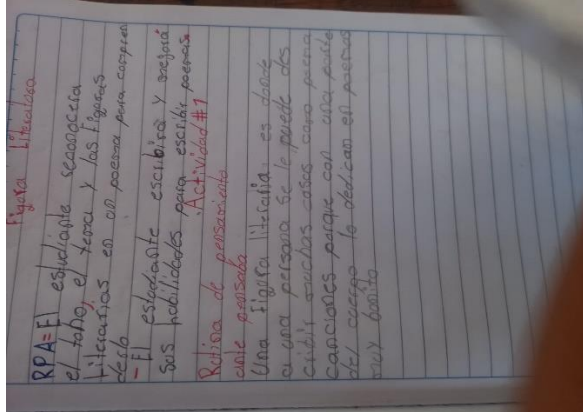 Figura Literatosa
RPA = El estudiante seconocera
el toño, el tema y las figuras
Literarias en un poema para compren
derlo
- El estudiante escribira y mejora
sus habilidades para escribir poemas.
Actividad #1
Rutina de pensamiento
ante pensaba
Una figura literaria es donde
a una persona se le puede des
cribir muchas cosas como poema
canciones porque con una parte
del cuerpo lo dedican en poemas
muy bonito